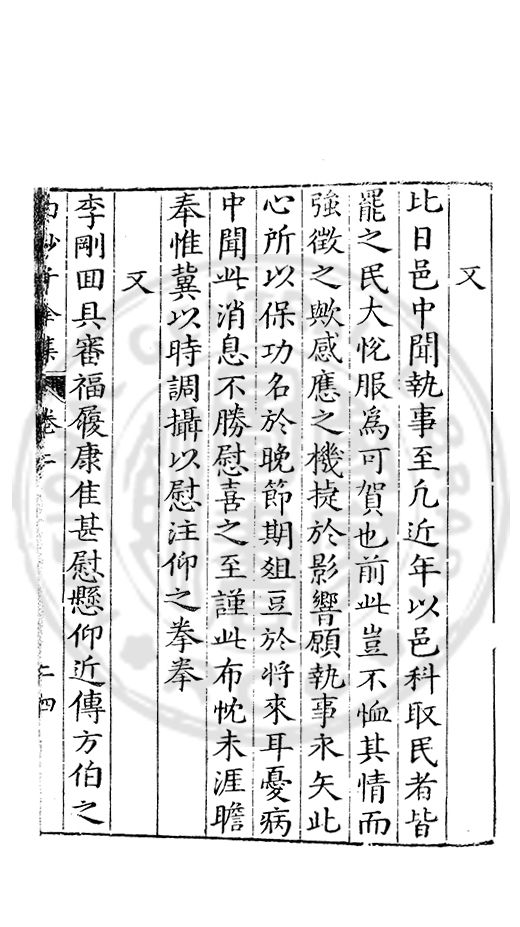 又
比日邑中聞執事至凢近年以邑科取民者皆
罷之民大恱服爲可賀也前此豈不恤其情而
強徵之歟感應之機㨗於影響願執事永矢此
心所以保功名於晚節期俎豆於將來耳憂病
中聞此消息不勝慰喜之至謹此布忱未涯瞻
奉惟冀以時調攝以慰注仰之拳拳
又
李剛囬具審福履康佳甚慰懸仰近傳方伯之
白沙子全集 卷二 二四